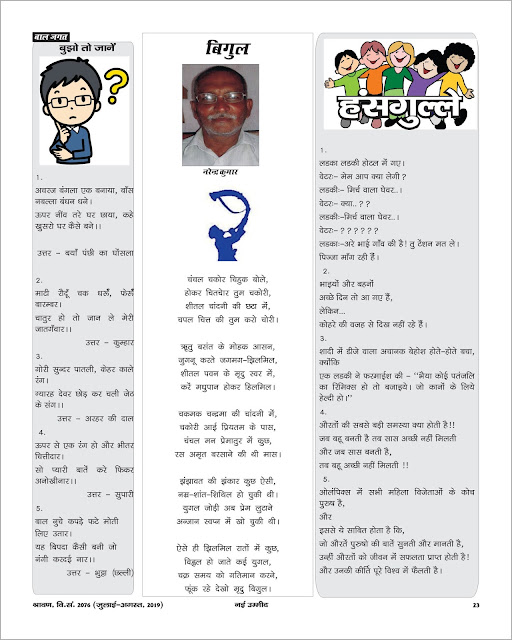 बाल जगत
बुझो तो जानें
1.
अचरज बंगला एक बनाया, बाँस
नबल्ला बंधन धने।
ऊपर नींव तरे घर छाया, कहे
खुसरो घर कैसे बने।।
उत्तर – बयाँ पंछी का घोंसला
2.
माटी रौदूँ चक धरूँ, फेरूँ
बारम्बर।
चातुर हो तो जान ले मेरी
जातगँवार।।
उत्तर – कुम्हार
3.
गोरी सुन्दर पातली, केहर काले
रंग।
ग्यारह देवर छोड़ कर चली जेठ
के संग।।
उत्तर – अरहर की दाल
4.
ऊपर से एक रंग हो और भीतर
चित्तीदार।
सो प्यारी बातें करे फिकर
अनोखीनार।।
उत्तर – सुपारी
5.
बाल नुचे कपड़े फटे मोती
लिए उतार।
यह बिपदा कैसी बनी जो
नंगी करदई नार।।
उत्तर – भुट्टा (छल्ली)
बिगुल
नरेन्द्र कुमार
चंचल चकोर चिहुक बोले,
होकर चितचोर तुम चकोरी,
शीतल चांदनी की छटा में,
चपल चित्त की तुम करो चोरी।
ऋतु बसंत के मोहक आसन,
जुगनू करते जगमग-झिलमिल,
शीतल पवन के मृदु स्वर में,
करें मधुपान होकर हिलमिल।
चकमक चन्द्रमा की चांदनी में,
चकोरी आई प्रियतम के पास,
चंचल मन प्रेमातुर में कुछ,
रस अमृत बरसाने की थी मास।
झंझावत की झंकार कुछ ऐसी,
नम्र-शांत-शिथिल हो चुकी थी।
युगल जोड़ी अब प्रेम लुटाने
अन्जान स्वप्न में खो चुकी थी।
ऐसे ही झिलमिल रातों में कुछ,
विहृत हो जाते कई युगल,
चक्र समय को गतिमान करने,
फूंक रहे देखो मृदु बिगुल।
हंसगुल्ले
1.
लडका लडकी होटल में गए।
वेटरः– मेम आप क्या लेगी ?
लडकीः– मिर्च वाला पेपर..।
वेटरः– क्या..? ?
लडकीः–मिर्च वाला पेपर..।
वेटरः– ? ? ? ? ? ?
लडकाः–अरे भाई गाँव की है! तु टेंशन मत ले।
पिज्जा माँग रही हैं।
2.
भाइयों और बहनों
अच्छे दिन तो आ गए हैं,
लेकिन...
कोहरे की वजह से दिख नहीं रहे हैं।
3.
शादी में डीजे वाला अचानक बेहोश होते-होते बचा,
क्योंकि
एक लडकी ने फरमाईश की – "भैया कोई पतंजलि
का रिमिक्स हो तो बजाइये। जो कानों के लिये
हेल्दी हो।"
4.
औरतों की सबसे बड़ी समस्या क्या होती है!!
जब बहू बनती है तब सास अच्छी नहीं मिलती
और जब सास बनती है,
तब बहू अच्छी नहीं मिलती !!
5.
ओलंपिक्स में सभी महिला विजेताओं के कोच
पुरुष हैं,
और
इससे ये साबित होता है कि,
जो औरतें पुरुषो की बातें सुनती और मानती है,
उन्हीं औरतों को जीवन में सफलता प्राप्त होती है!
और उनकी कीर्ति पूरे विश्व में फैलती है।
श्रावण, वि.सं. 2076 (जुलाई-अगस्त, 2019)
नई उम्मीद
23